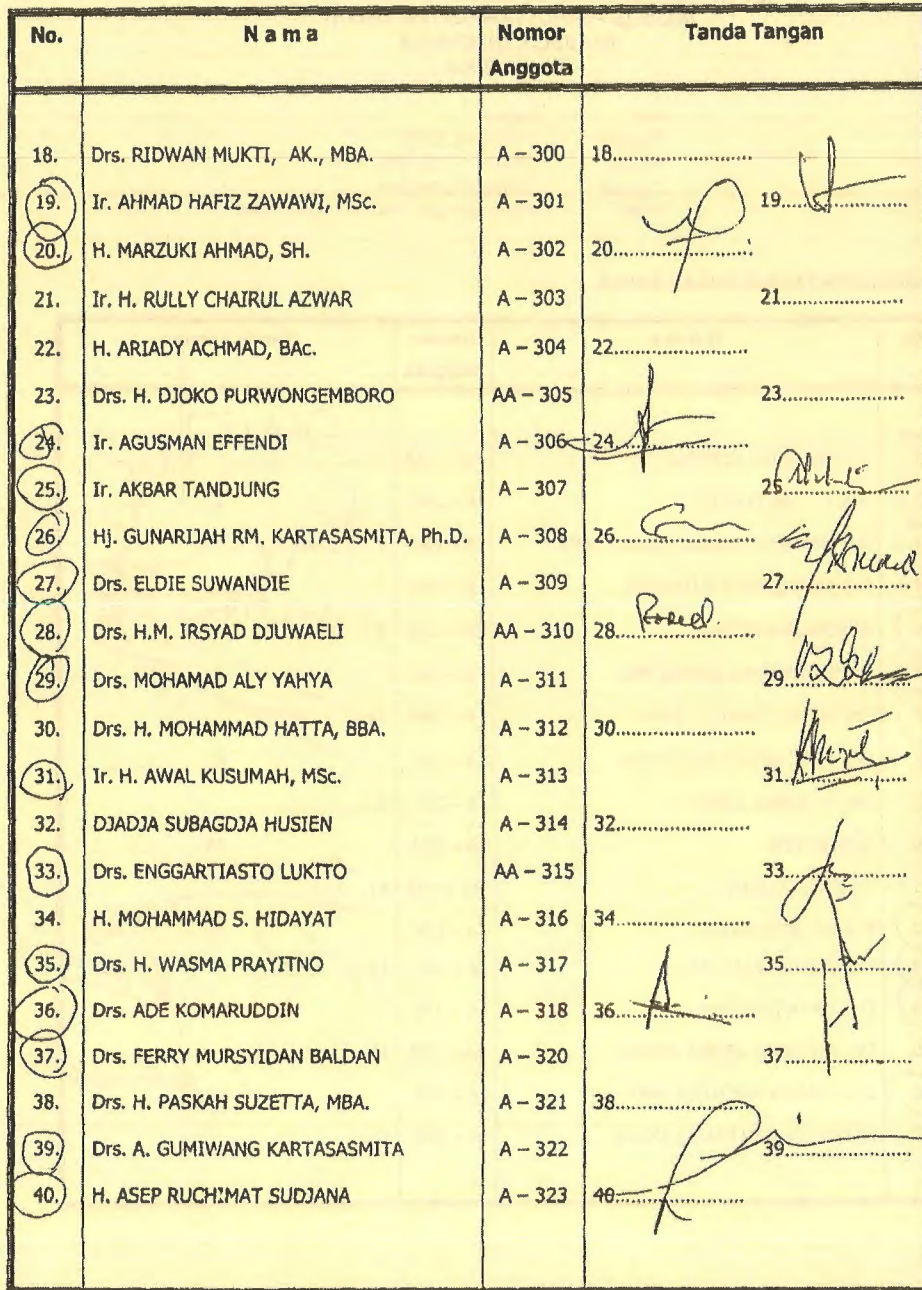 No. N a m a Nomor Anggota Tanda Tangan
18. Drs. RIDWAN MUKTI, AK., MBA. A – 300 18....................
19. Ir. AHMAD HAFIZ ZAWAWI, MSc. A – 301 19....................
20. H. MARZUKI AHMAD, SH. A – 302 20....................
21. Ir. H. RULLY CHAIRUL AZWAR A – 303 21....................
22. H. ARIADY ACHMAD, BAc. A – 304 22....................
23. Drs. H. DJOKO PURWONGEMBORO AA – 305 23....................
24. Ir. AGUSMAN EFFENDI A – 306 24....................
25. Ir. AKBAR TANDJUNG A – 307 25....................
26. Hj. GUNARIJAH RM. KARTASASMITA, Ph.D. A – 308 26....................
27. Drs. ELDIE SUWANDIE A – 309 27....................
28. Drs. H.M. IRSYAD DJUWAELI AA – 310 28....................
29. Drs. MOHAMAD ALY YAHYA A – 311 29....................
30. Drs. H. MOHAMMAD HATTA, BBA. A – 312 30....................
31. Ir. H. AWAL KUSUMAH, MSc. A – 313 31....................
32. DJADJA SUBAGDJA HUSIEN A – 314 32....................
33. Drs. ENGGARTIASTO LUKITO AA – 315 33....................
34. H. MOHAMMAD S. HIDAYAT A – 316 34....................
35. Drs. H. WASMA PRAYITNO A – 317 35....................
36. Drs. ADE KOMARUDDIN A – 318 36....................
37. Drs. FERRY MURSYIDAN BALDAN A – 320 37....................
38. Drs. H. PASKAH SUZETTA, MBA. A – 321 38....................
39. Drs. A. GUMIWANG KARTASASMITA A – 322 39....................
40. H. ASEP RUCHIMAT SUDJANA A – 323 40....................